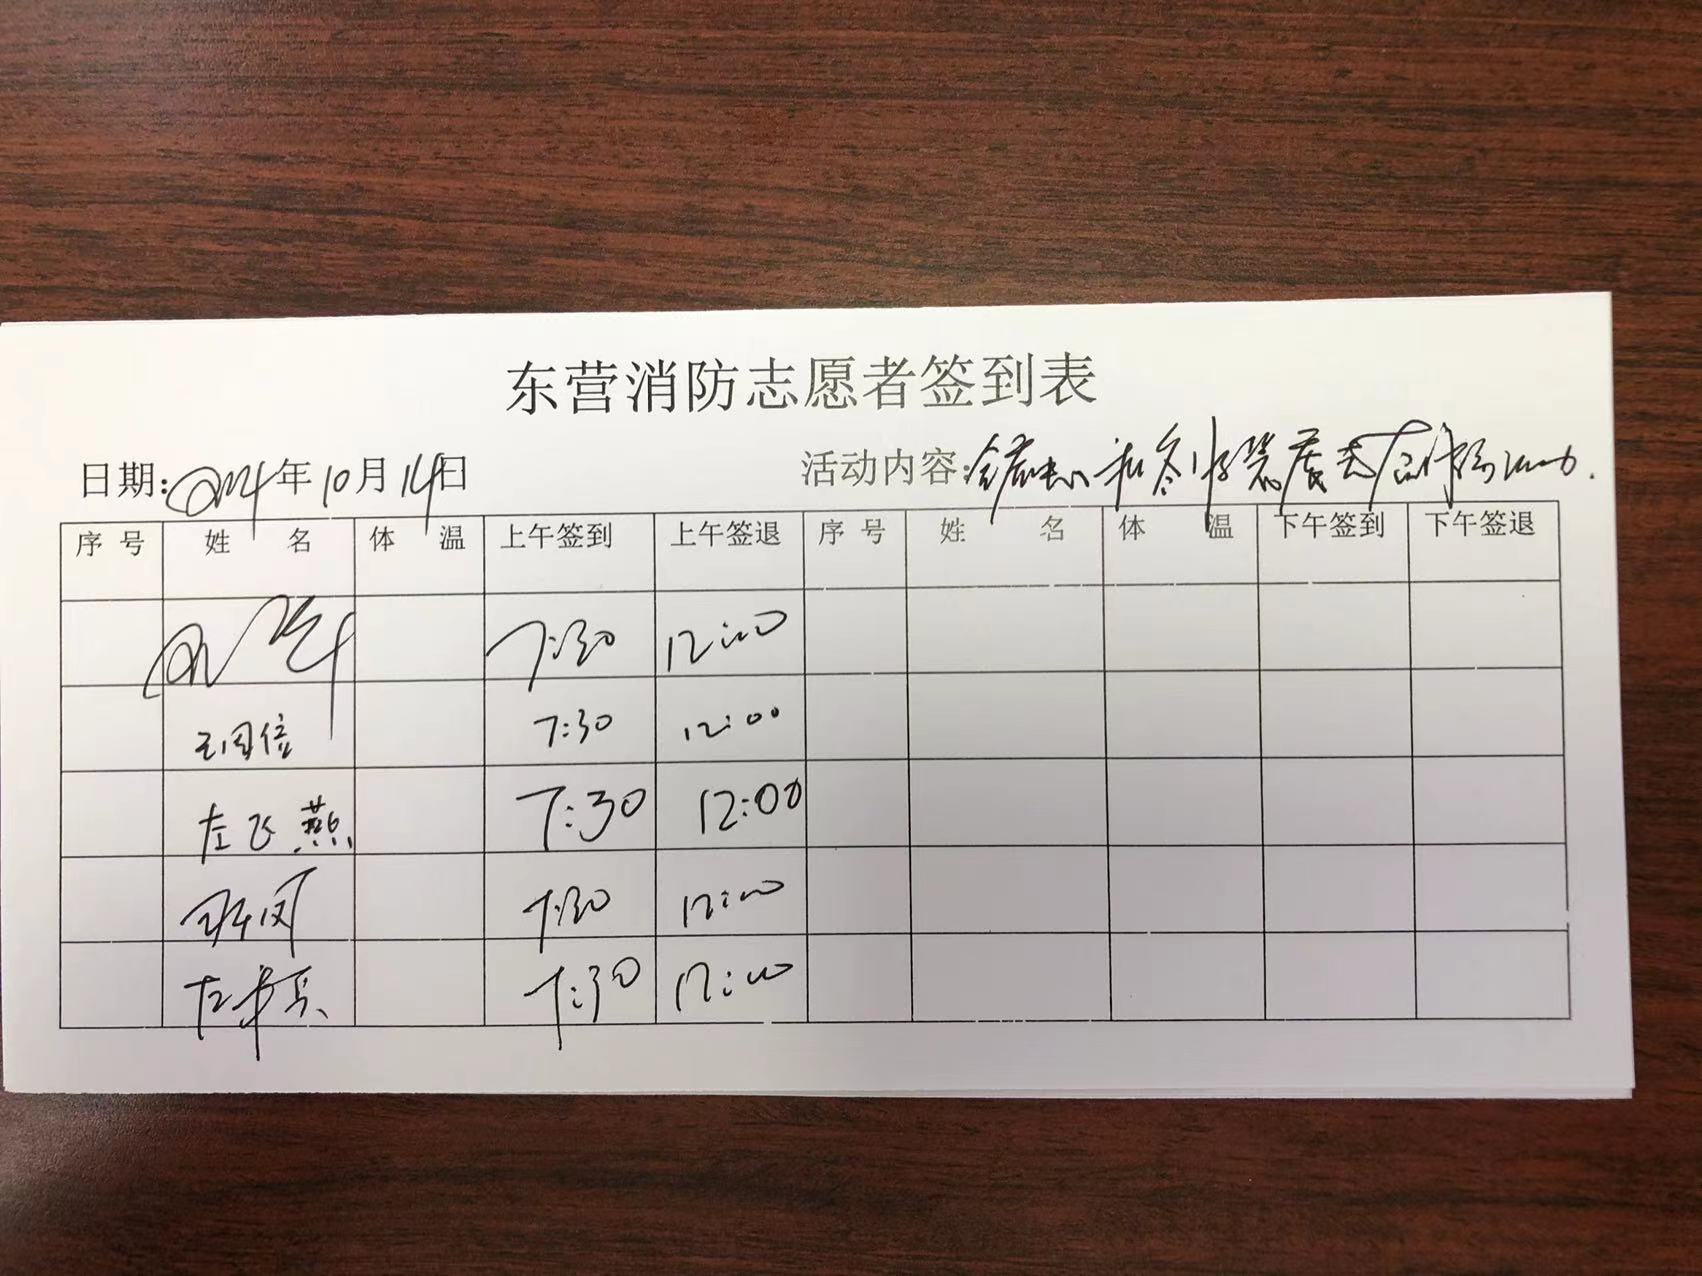 东营消防志愿者签到表
日期:2024年10月14日 活动内容:
序号 姓名 体温 上午签到 上午签退 序号 姓名 体温 下午签到 下午签退
7:30 12:00
王同信 7:30 12:00
左飞燕 7:30 12:00
7:30 12:00
7:30 12:00